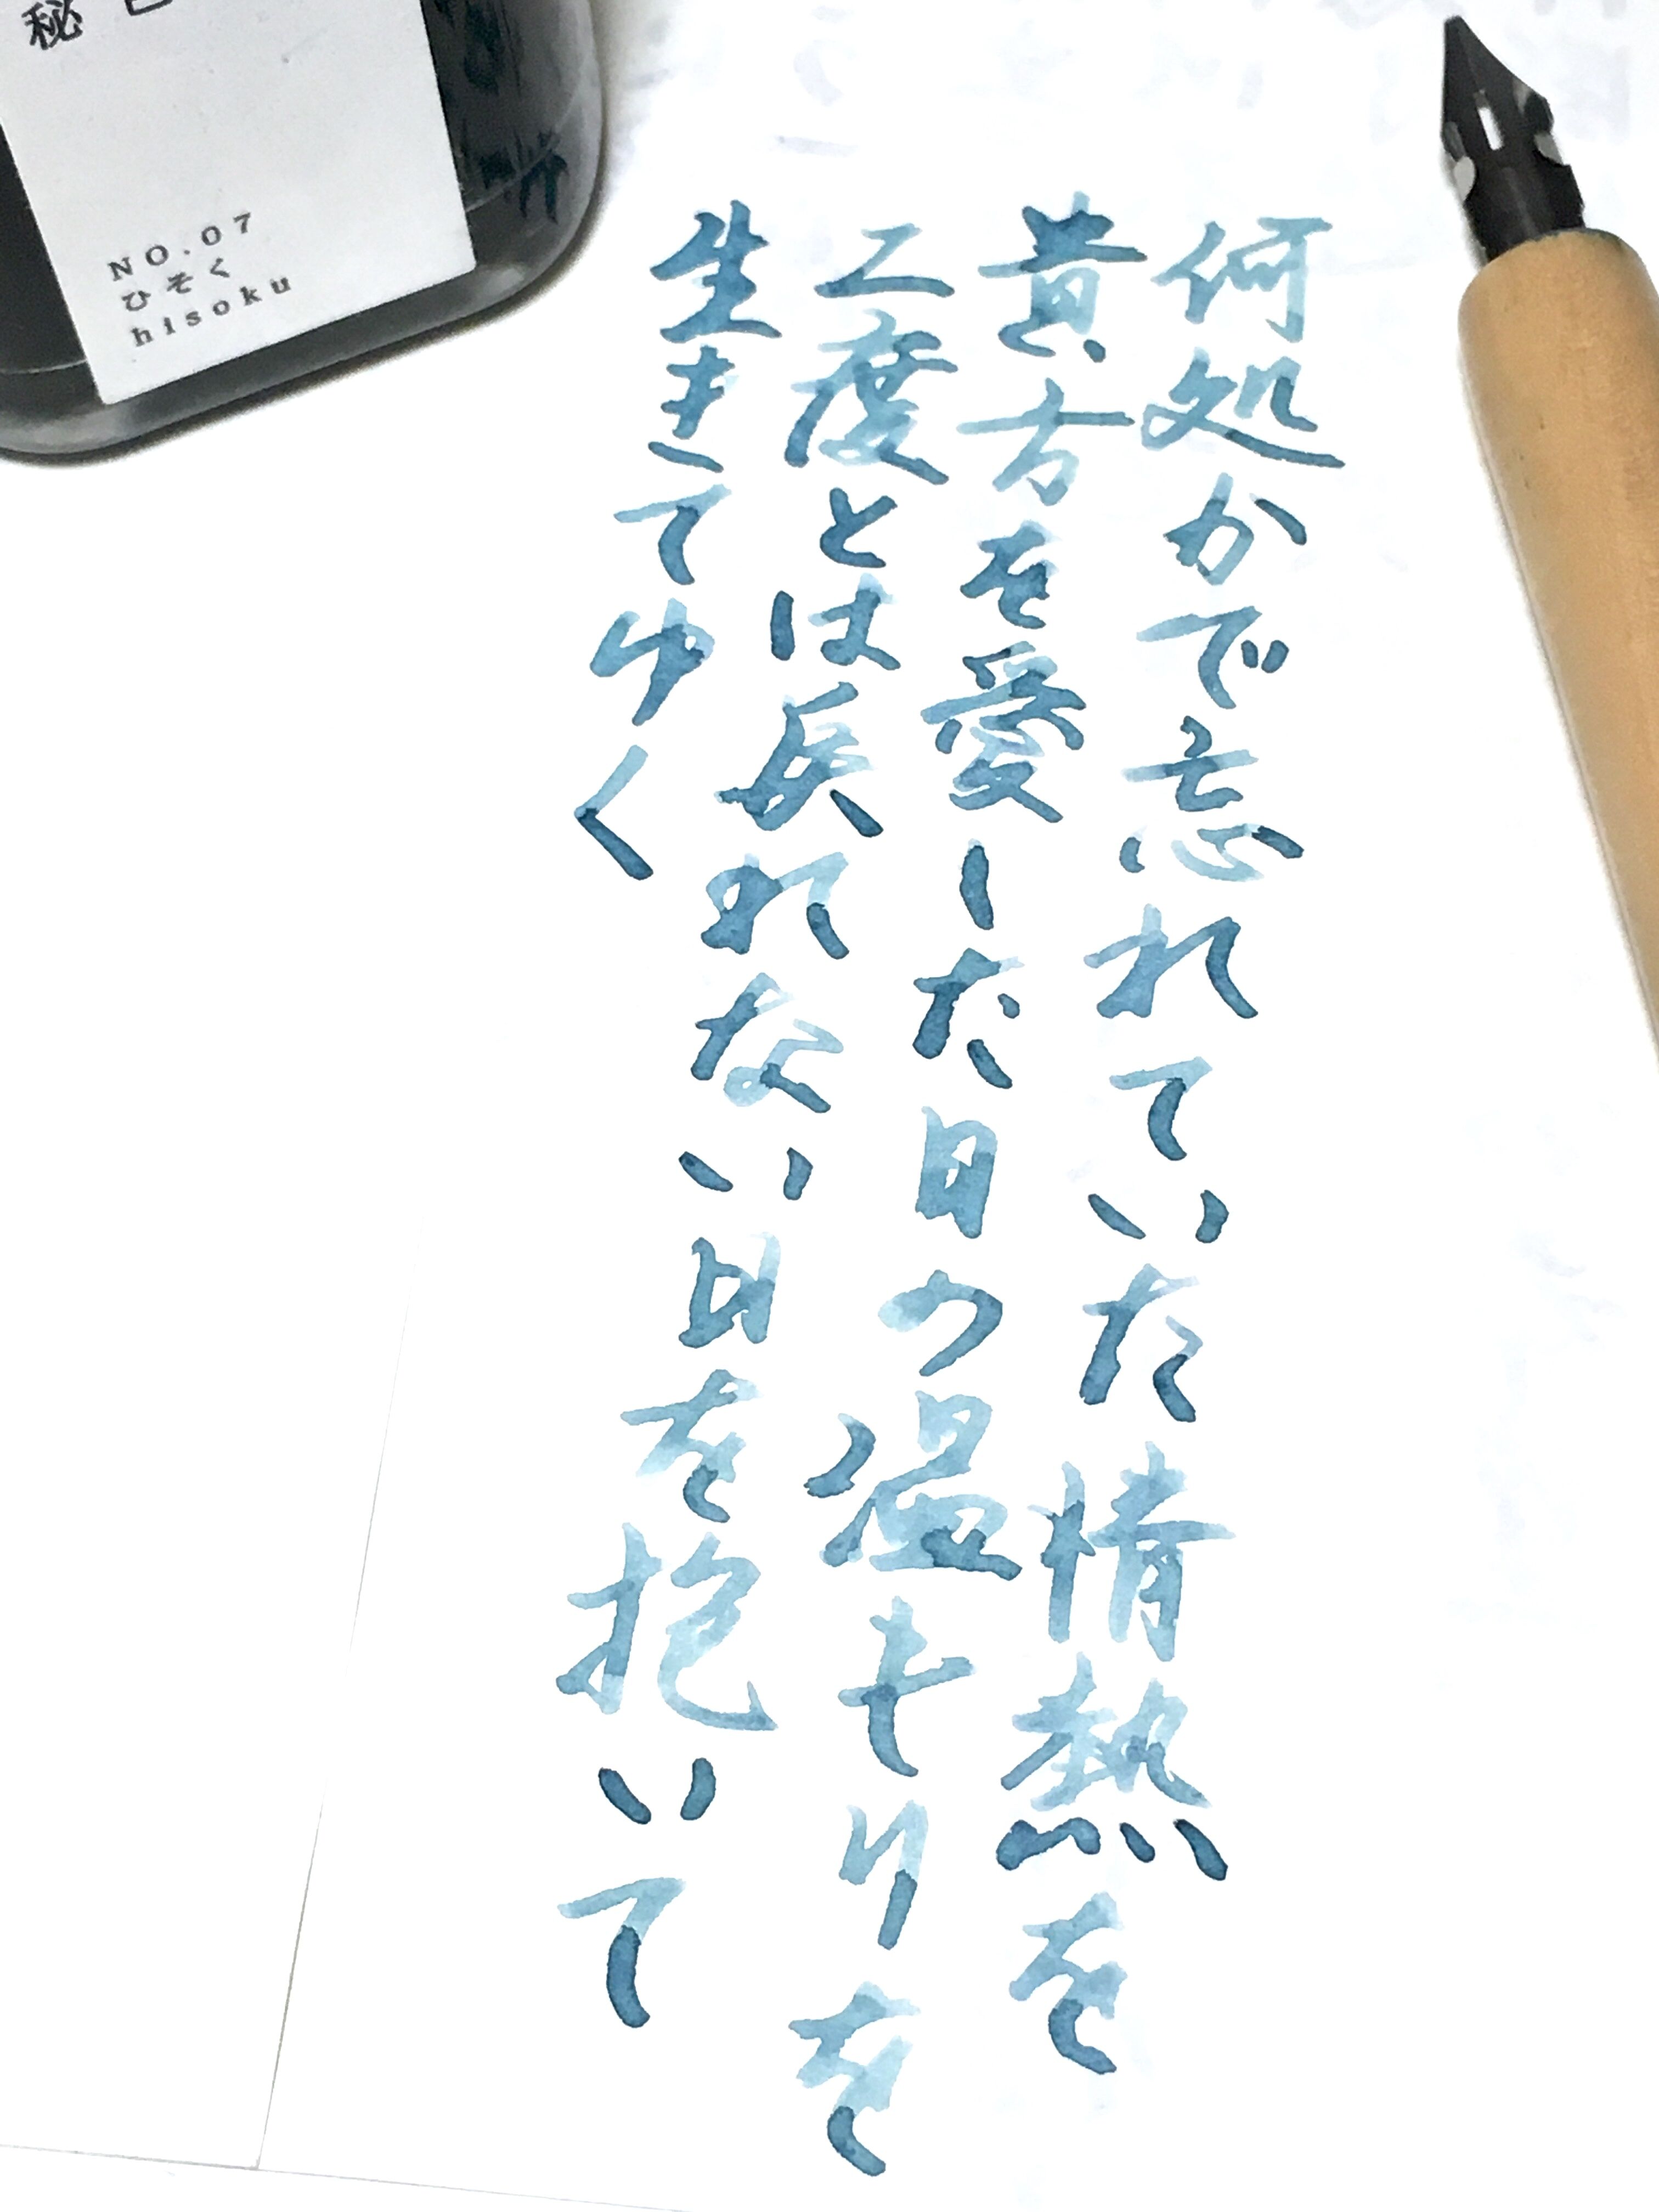 何処かで忘れていた情熱を
貴方を愛した日の温もりを
二度とは戻れない日を抱いて
生きてゆく
秘色
NO.07
ひそく
hisoku